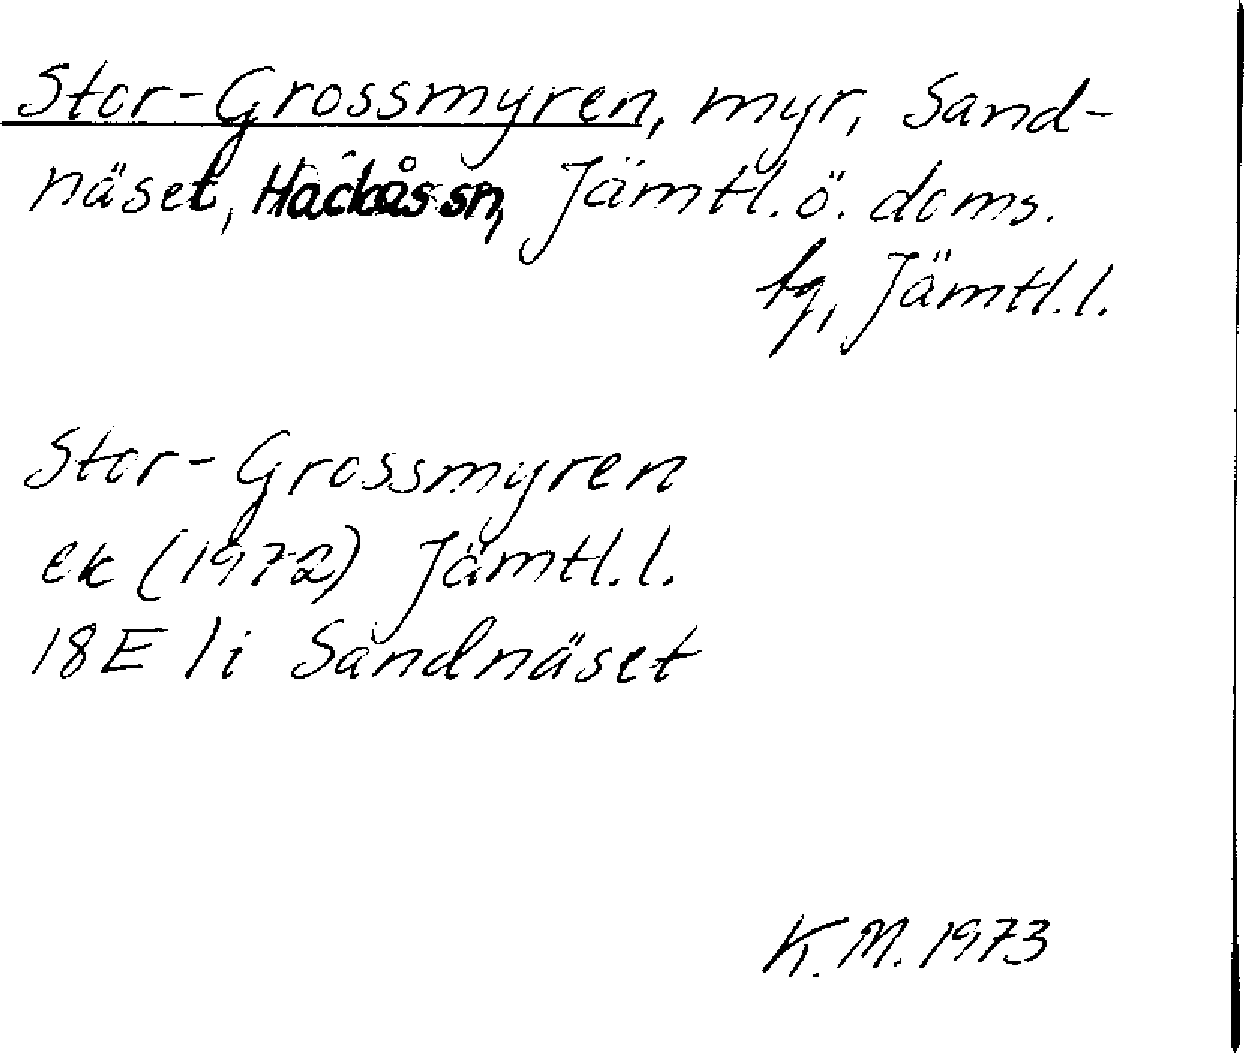 Stor-Grossmyren, myr, Sand-
näset, Hackås sn, Jämtl. ö. doms.
tg, Jämtl. l.
Stor-Grossmyren
ek (1972) Jämtl. l.
18E 1i Sandnäset
K. M. 1973